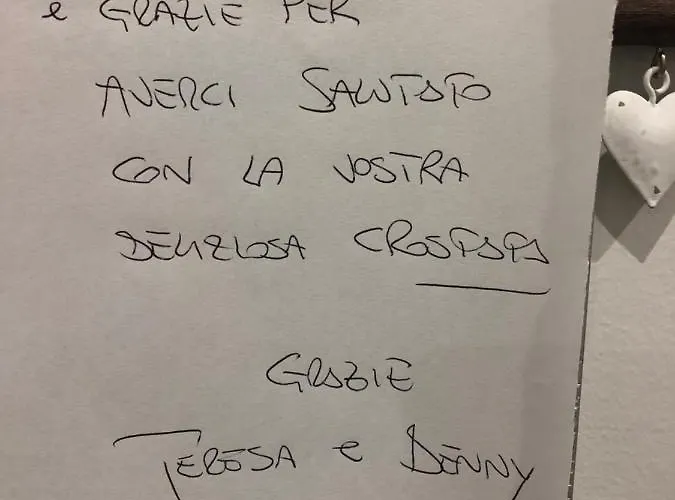 e GRAZIE PER
AVERCI SALUTATO
CON LA VOSTRA
DELIZIOSA CROSTATA
GRAZIE
TERESA e DENNY